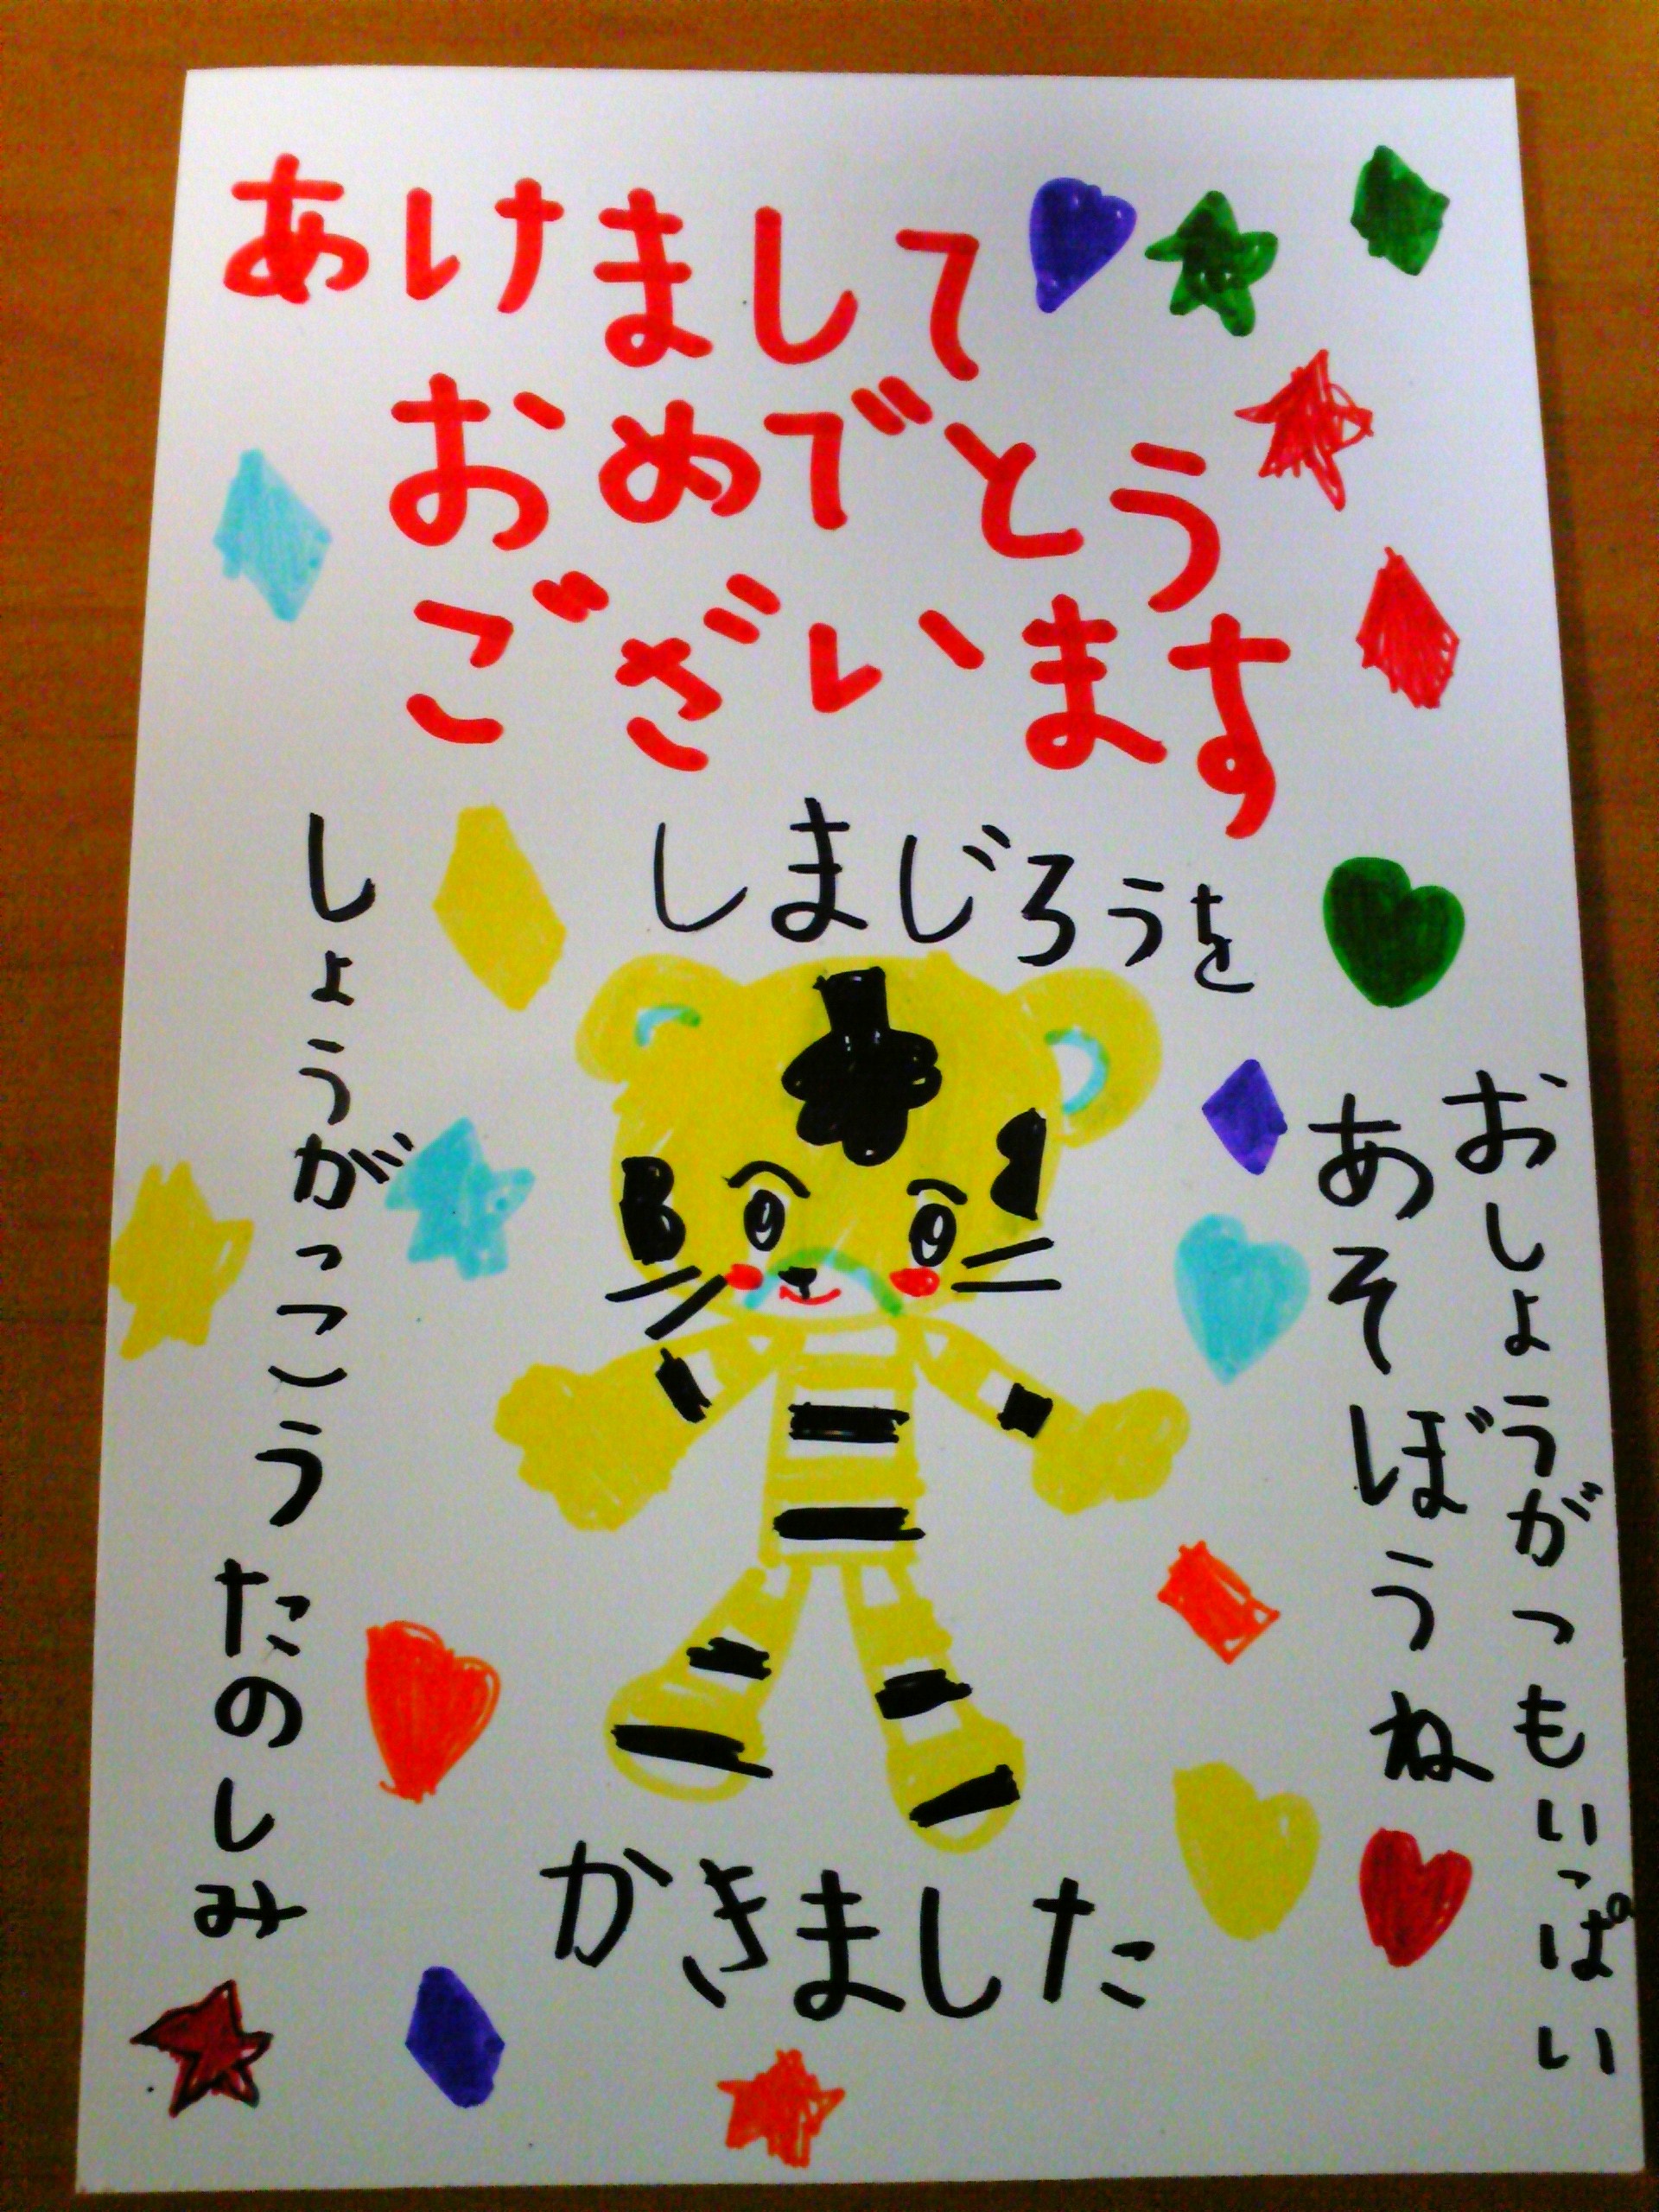 あけまして
おめでとう
ございます
しまじろうを
かきました
おしょうがつもいっぱい
あそぼうね
しょうがっこう たのしみ